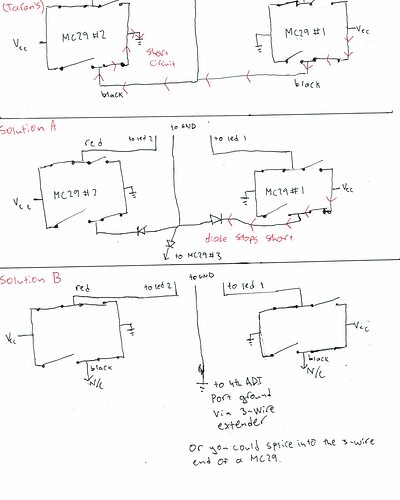 (Taran's)
Vcc
MC29 #2
short
circuit
MC29 #1
black
black
Solution A
red
to led 2
to GND
to led 1
Vcc
MC29 #2
MC29 #1
Vcc
diode stops short
to MC29 #3
Solution B
red
to led 2
to GND
to led 1
Vcc
Vcc
black
N/C
black
N/C
to 4th ADI
Port ground
via 3-wire
extender
Or you could splice into the 3-wire
end of a MC29.